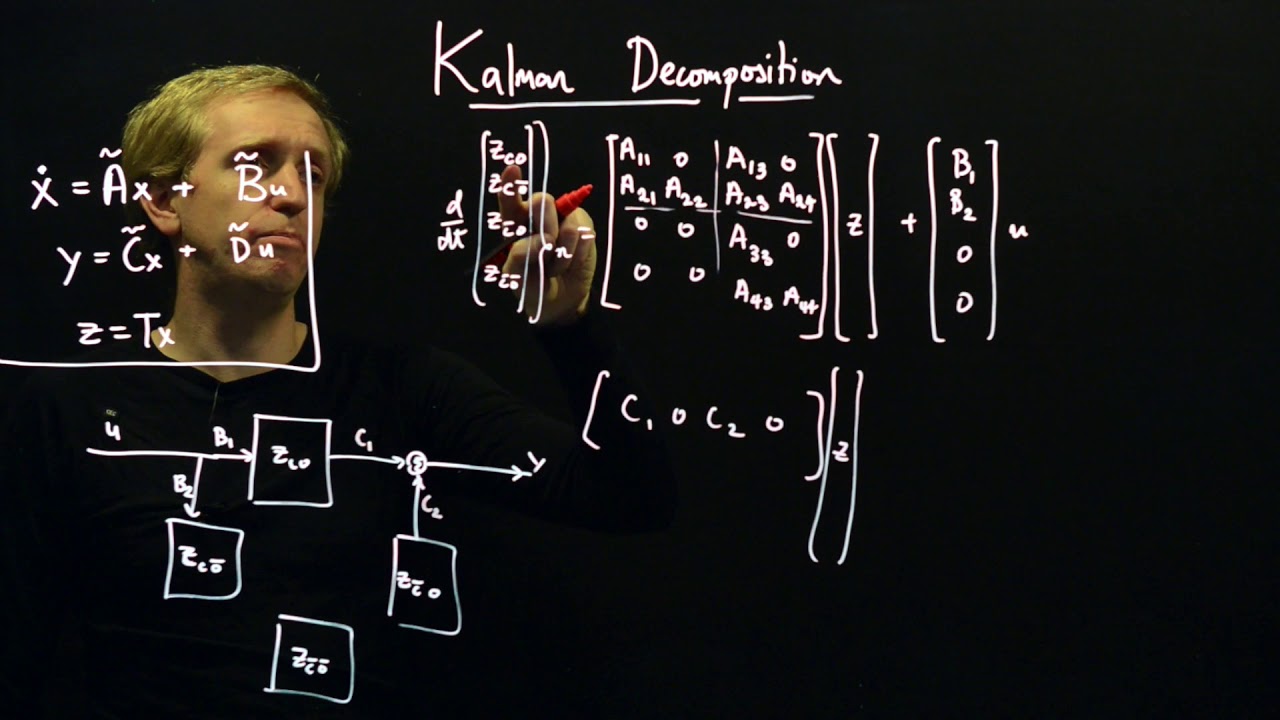 Kalman Decomposition
ẋ = Ãx + B̃u
y = C̃x + D̃u
z = Tx
d/dt [z_co z_cō z_c̄o z_c̄ō] n = [A₁₁ 0 A₁₃ 0
A₂₁ A₂₂ A₂₃ A₂₄
0 0 A₃₃ 0
0 0 A₄₃ A₄₄] [z] + [B₁ B₂ 0 0] u
[C₁ 0 C₂ 0] [z]
u B₁ z_co C₁ y
B₂ C₂
z_cō z_c̄o
z_c̄ō